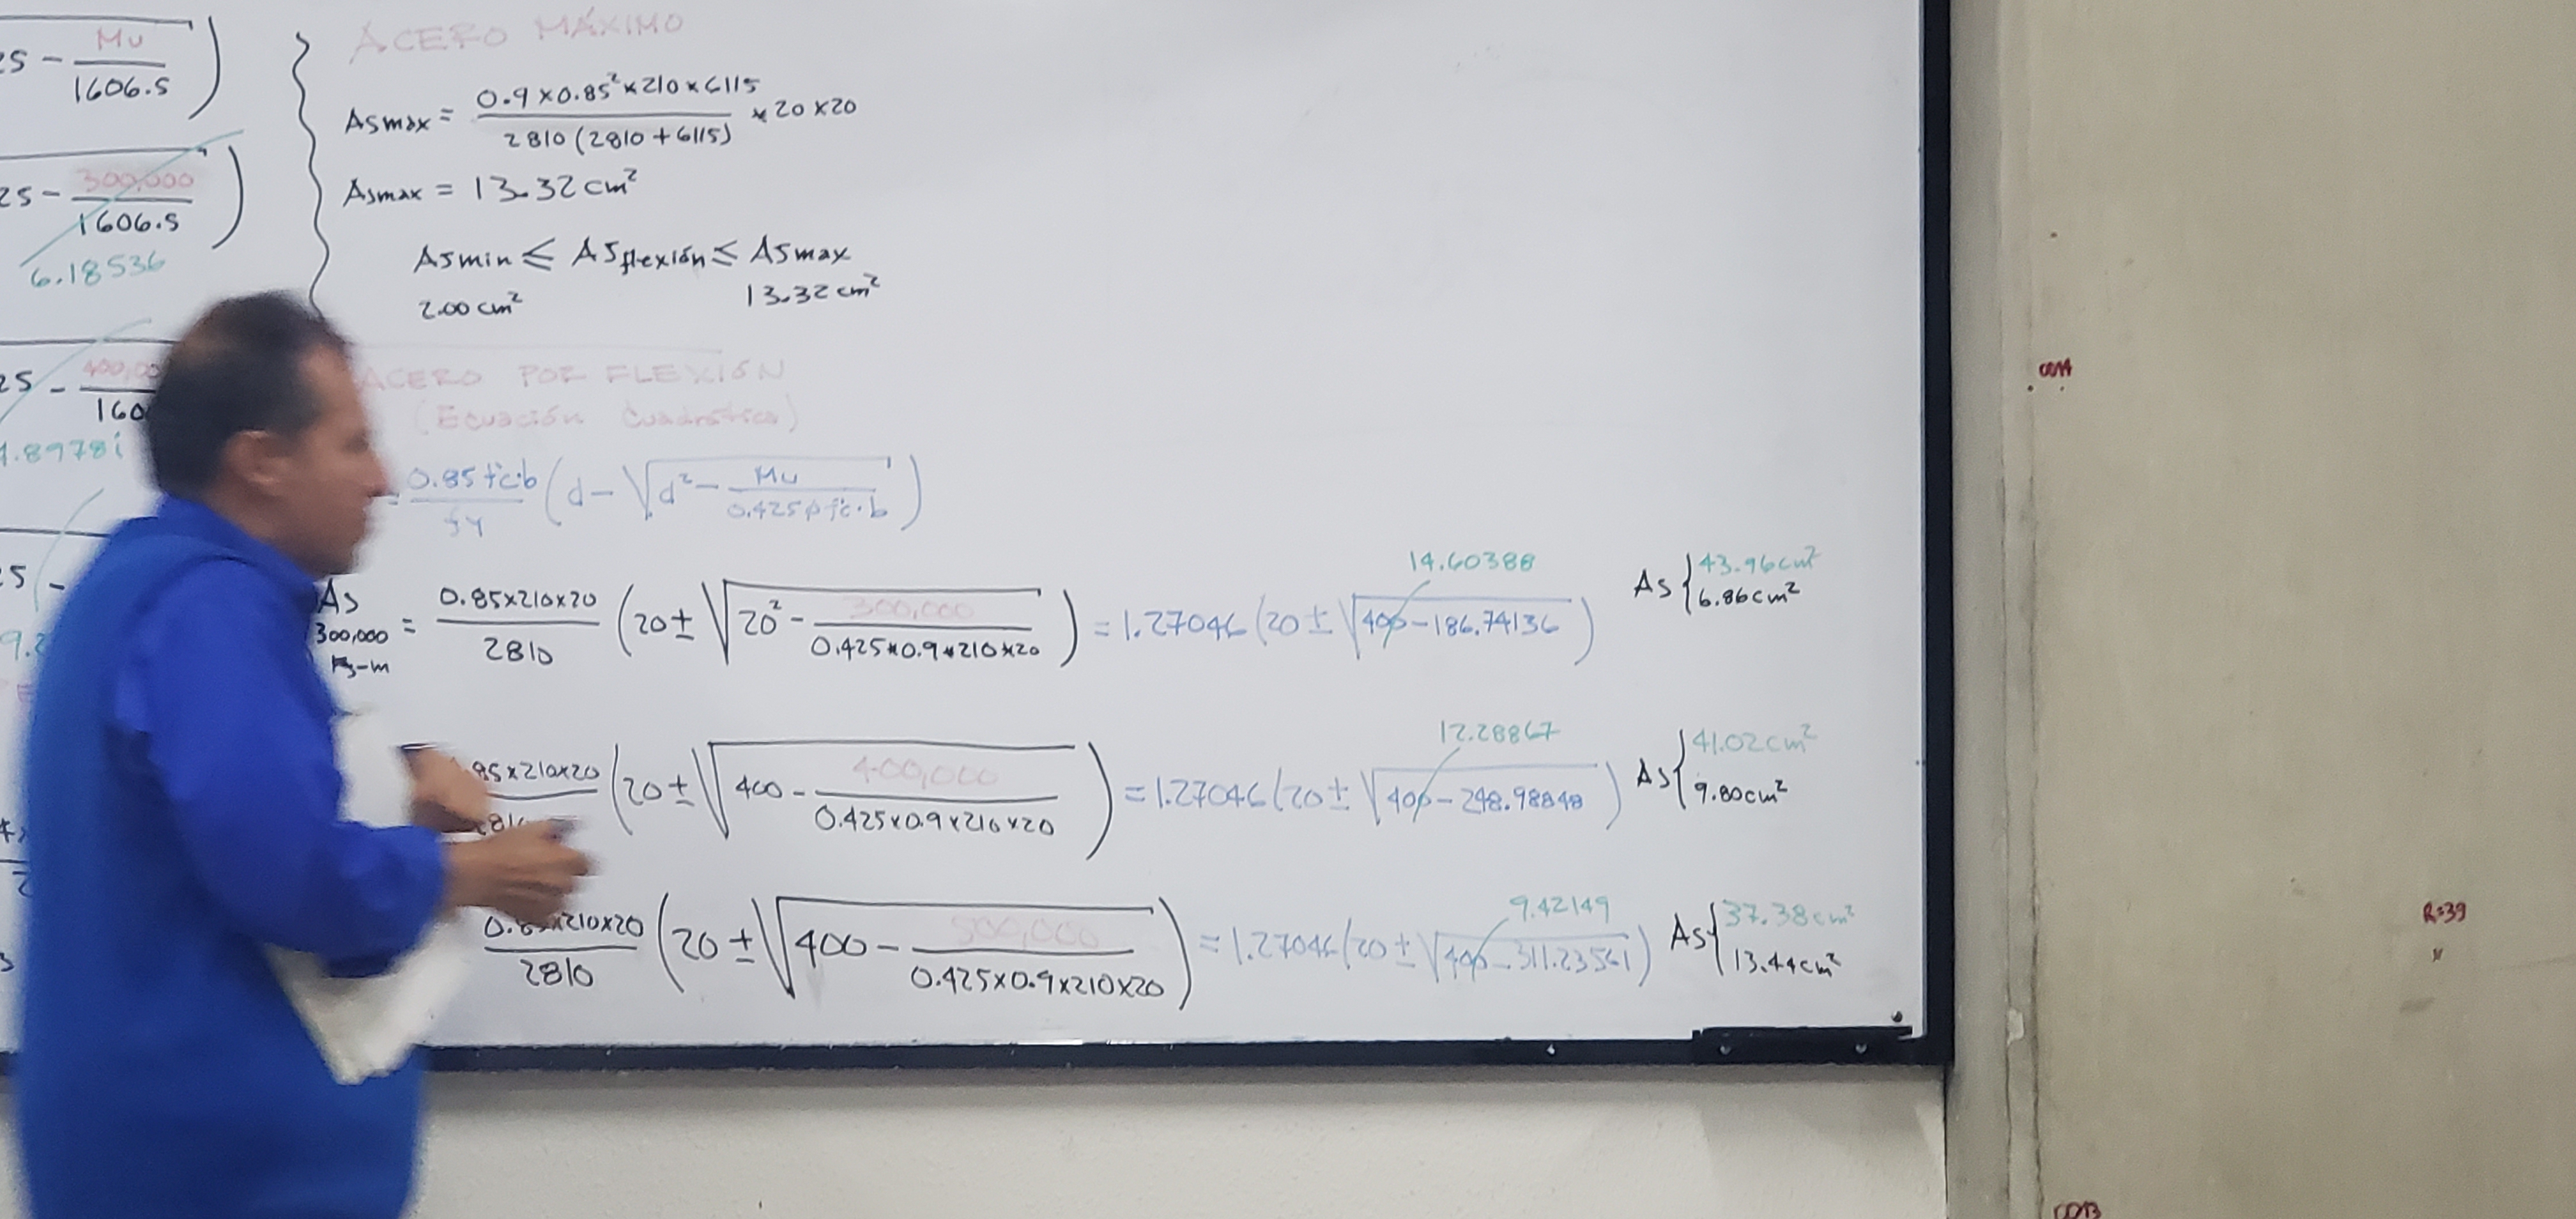 25 - Mu / 1606.5 )
25 - 300,000 / 1606.5 )
6.18536
25 - 400,00 / 160
.8978i
25 -
ACERO MÁXIMO
Asmax = 0.9 x 0.85² x 210 x 6115 / 2810 (2810 + 6115) x 20 x 20
Asmax = 13.32 cm²
Asmin ≤ As flexión ≤ Asmax
2.00 cm² 13.32 cm²
ACERO POR FLEXIÓN
(Ecuación Cuadrática)
= 0.85 f'c·b / fy ( d - √ d² - Mu / 0.425 φ f'c·b )
As 300,000 kg-m = 0.85x210x20 / 2810 ( 20 ± √ 20² - 300,000 / 0.425x0.9x210x20 ) = 1.27046 (20 ± √ 400 - 186.74136 ) 14.60388 As { 43.96 cm² 6.86 cm²
.85x210x20 / 281 ( 20 ± √ 400 - 400,000 / 0.425x0.9x210x20 ) = 1.27046 (20 ± √ 400 - 248.98848 ) 12.28867 As { 41.02 cm² 9.80 cm²
0.85x210x20 / 2810 ( 20 ± √ 400 - 500,000 / 0.425x0.9x210x20 ) = 1.27046 (20 ± √ 400 - 311.23561 ) 9.42149 As { 37.38 cm² 13.44 cm²
R=39